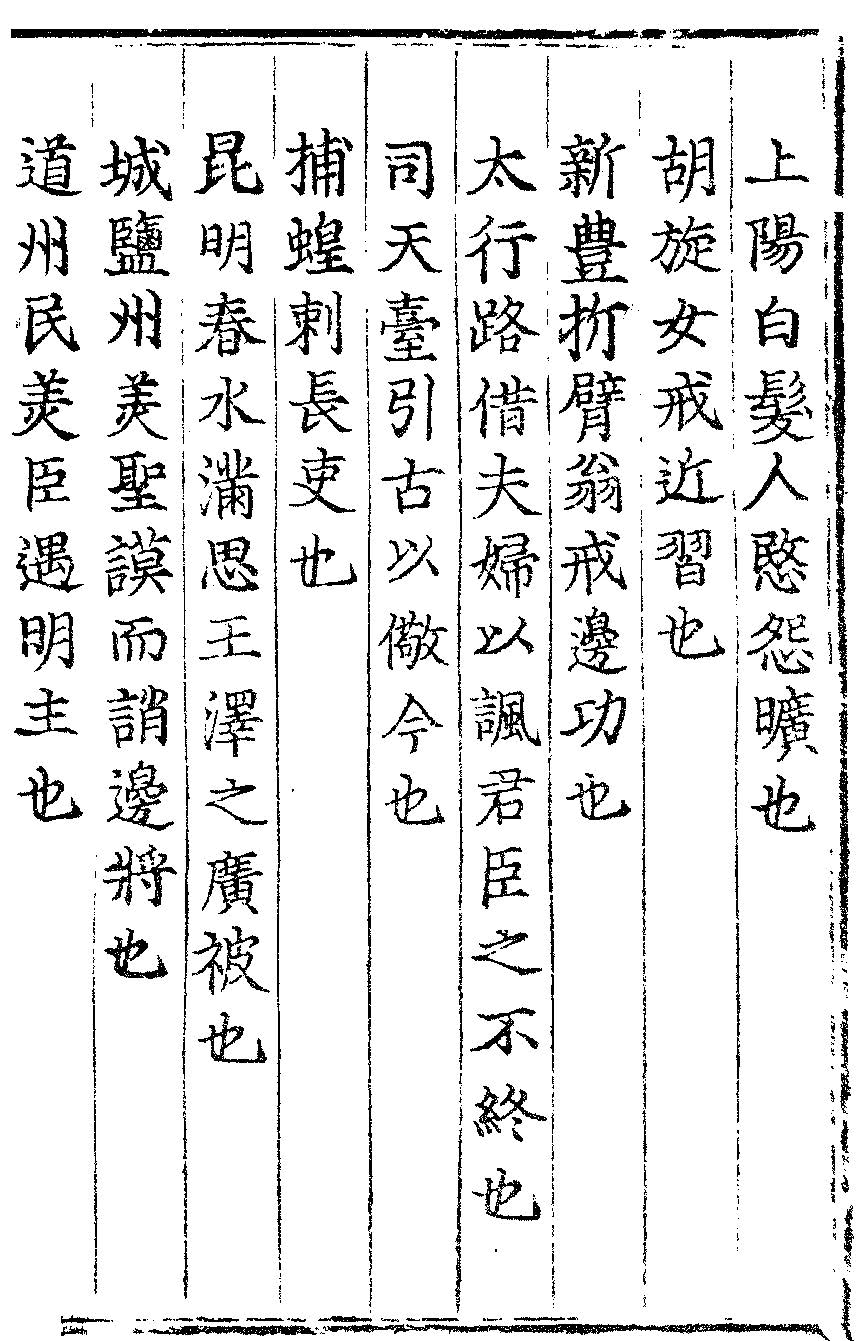 上陽白髮人愍怨曠也
胡旋女戒近習也
新豊折臂翁戒邊功也
太行路借夫婦以諷君臣之不終也
司天臺引古以儆今也
捕蝗刺長吏也
昆明春水滿思王澤之廣被也
城鹽州美聖謨而誚邊將也
道州民美臣遇明主也